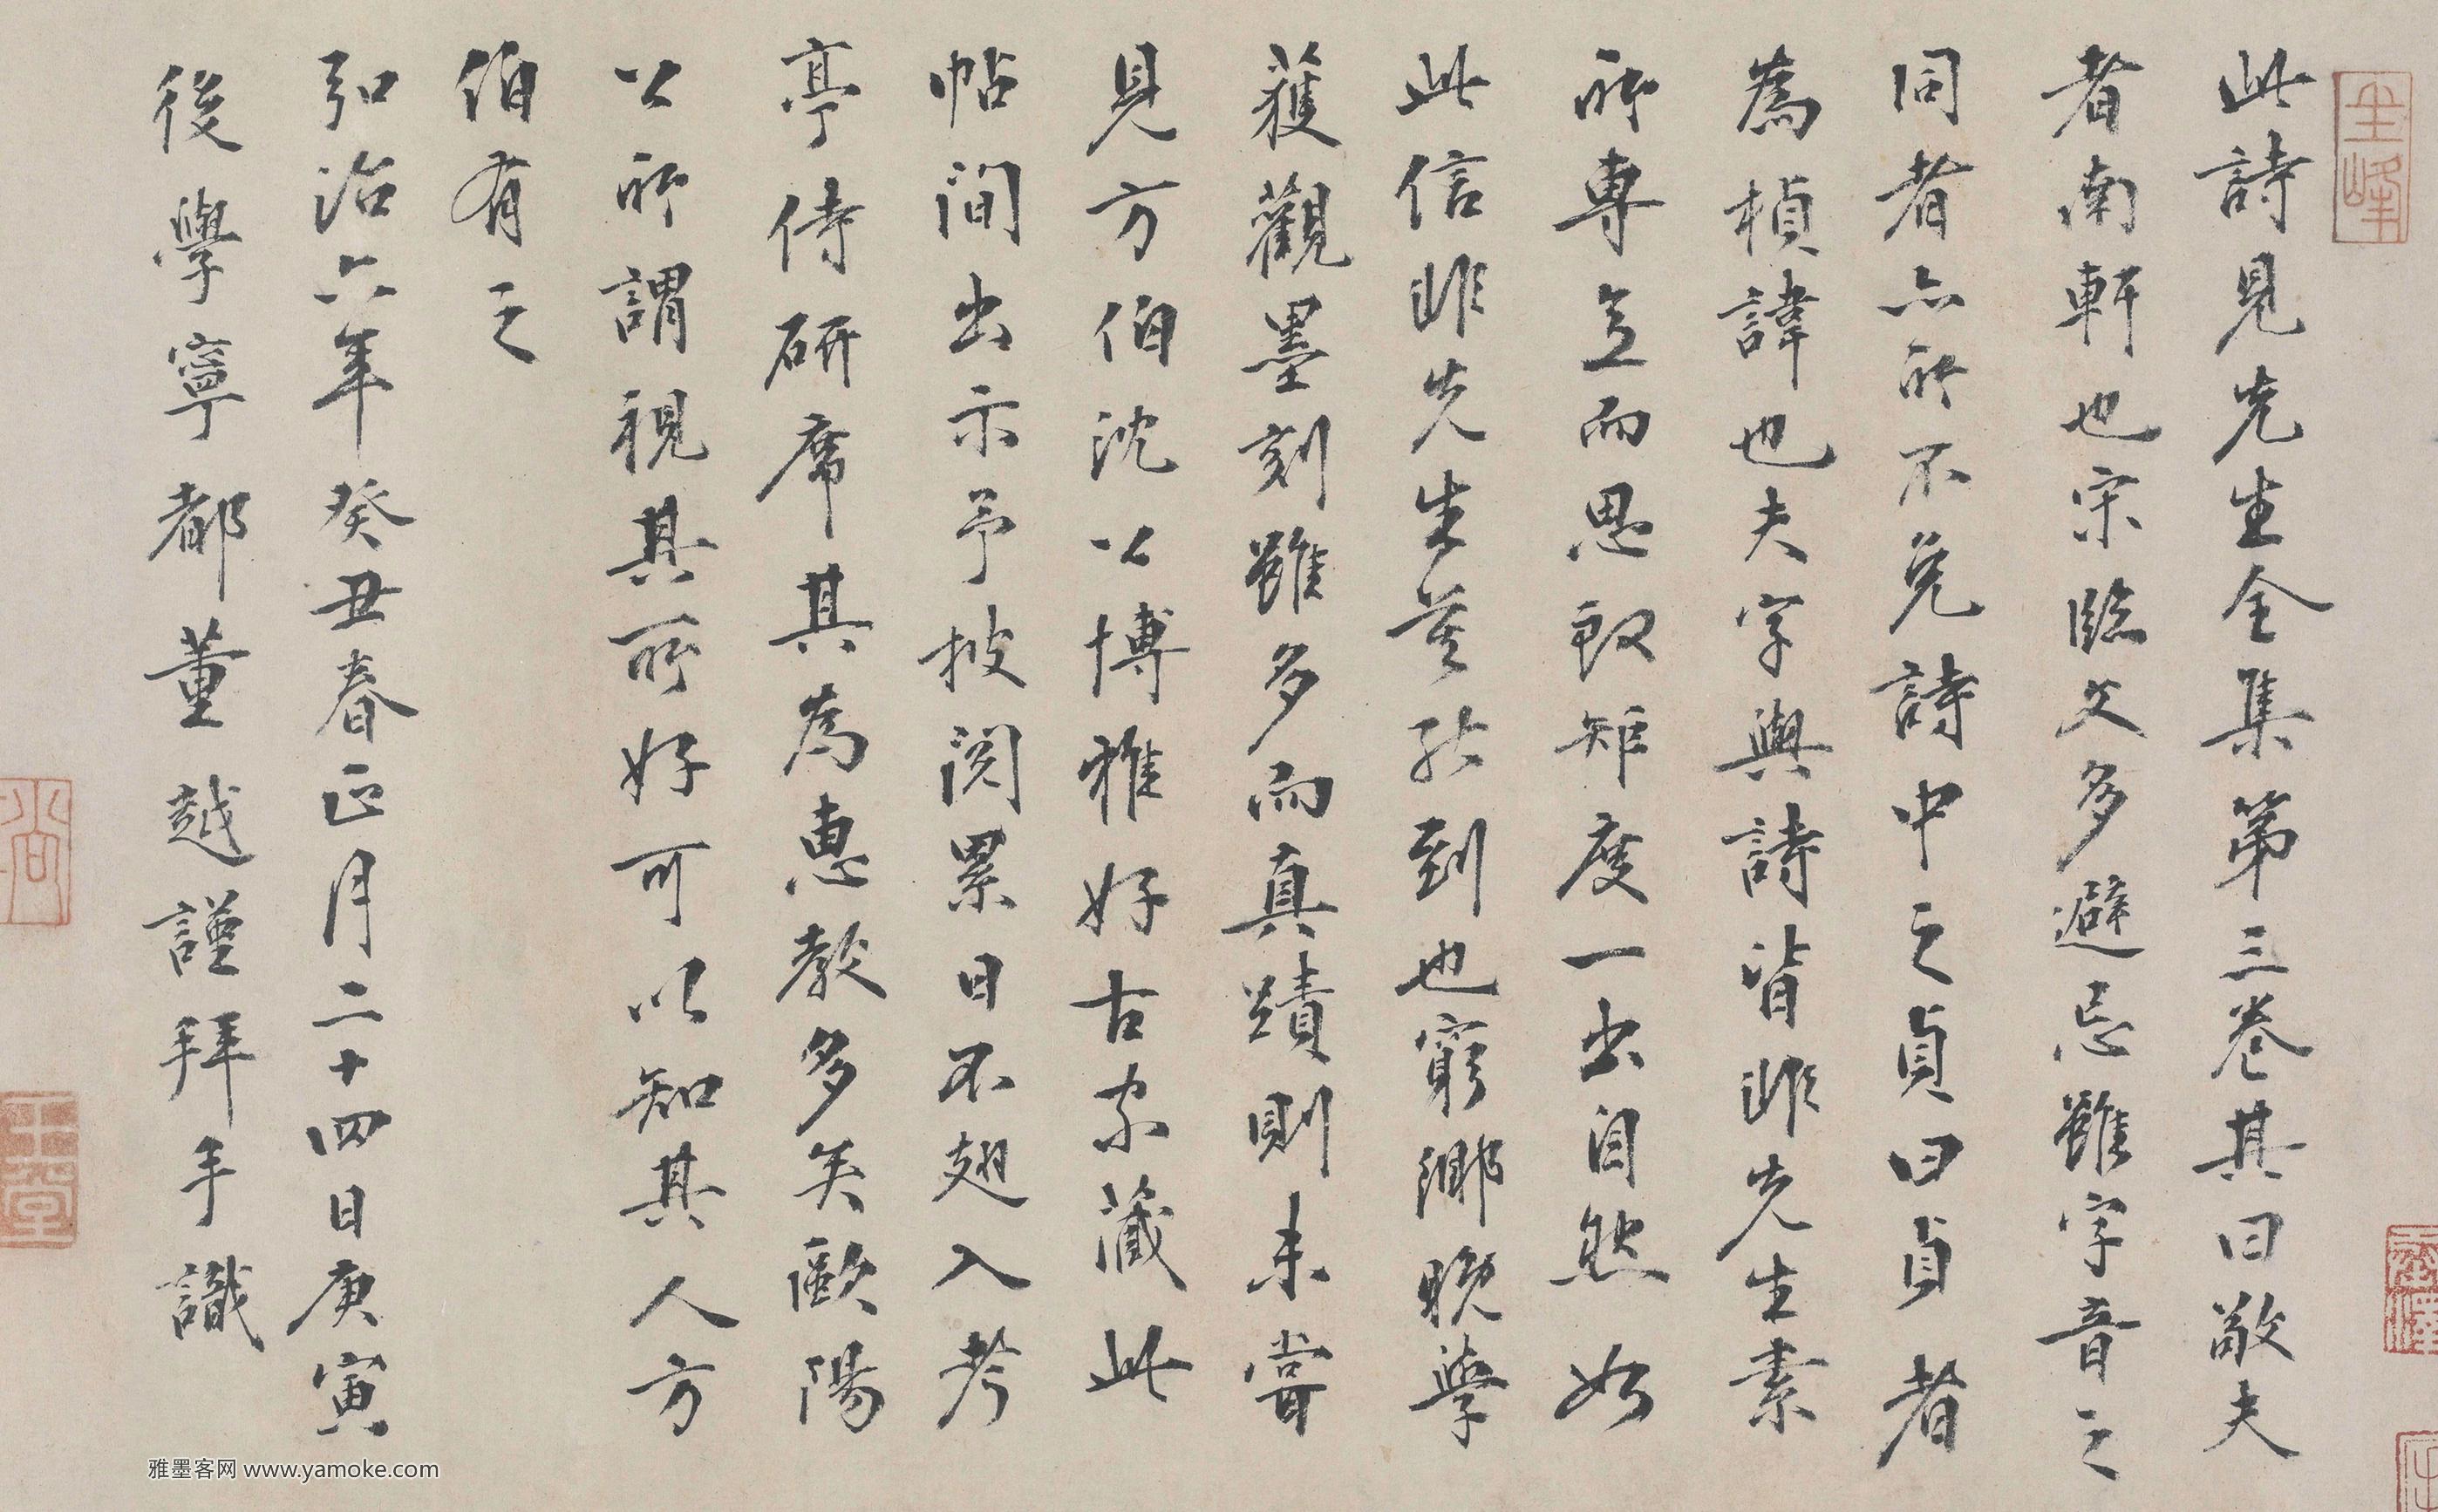 此詩見先生全集第三卷其曰敬夫
者南軒也宋臨文多避忌雖字音之
同者亦所不免詩中之貞曰貞者
為楨諱也夫字與詩皆非先生素
所專意而思致矩度一出自然如
此信非先生莫能到也窮鄉晚學
獲觀墨刻雖多而真蹟則未嘗
見方伯沈公博雅好古家藏此
帖間出示予披閱累日不翅入考
亭侍研席其為惠教多矣歐陽
公所謂視其所好可以知其人方
伯有之
弘治六年癸丑春正月二十四日庚寅
後學寧都董越謹拜手識
玉峰
尚
玉堂
雅墨客网 www.yamoke.com